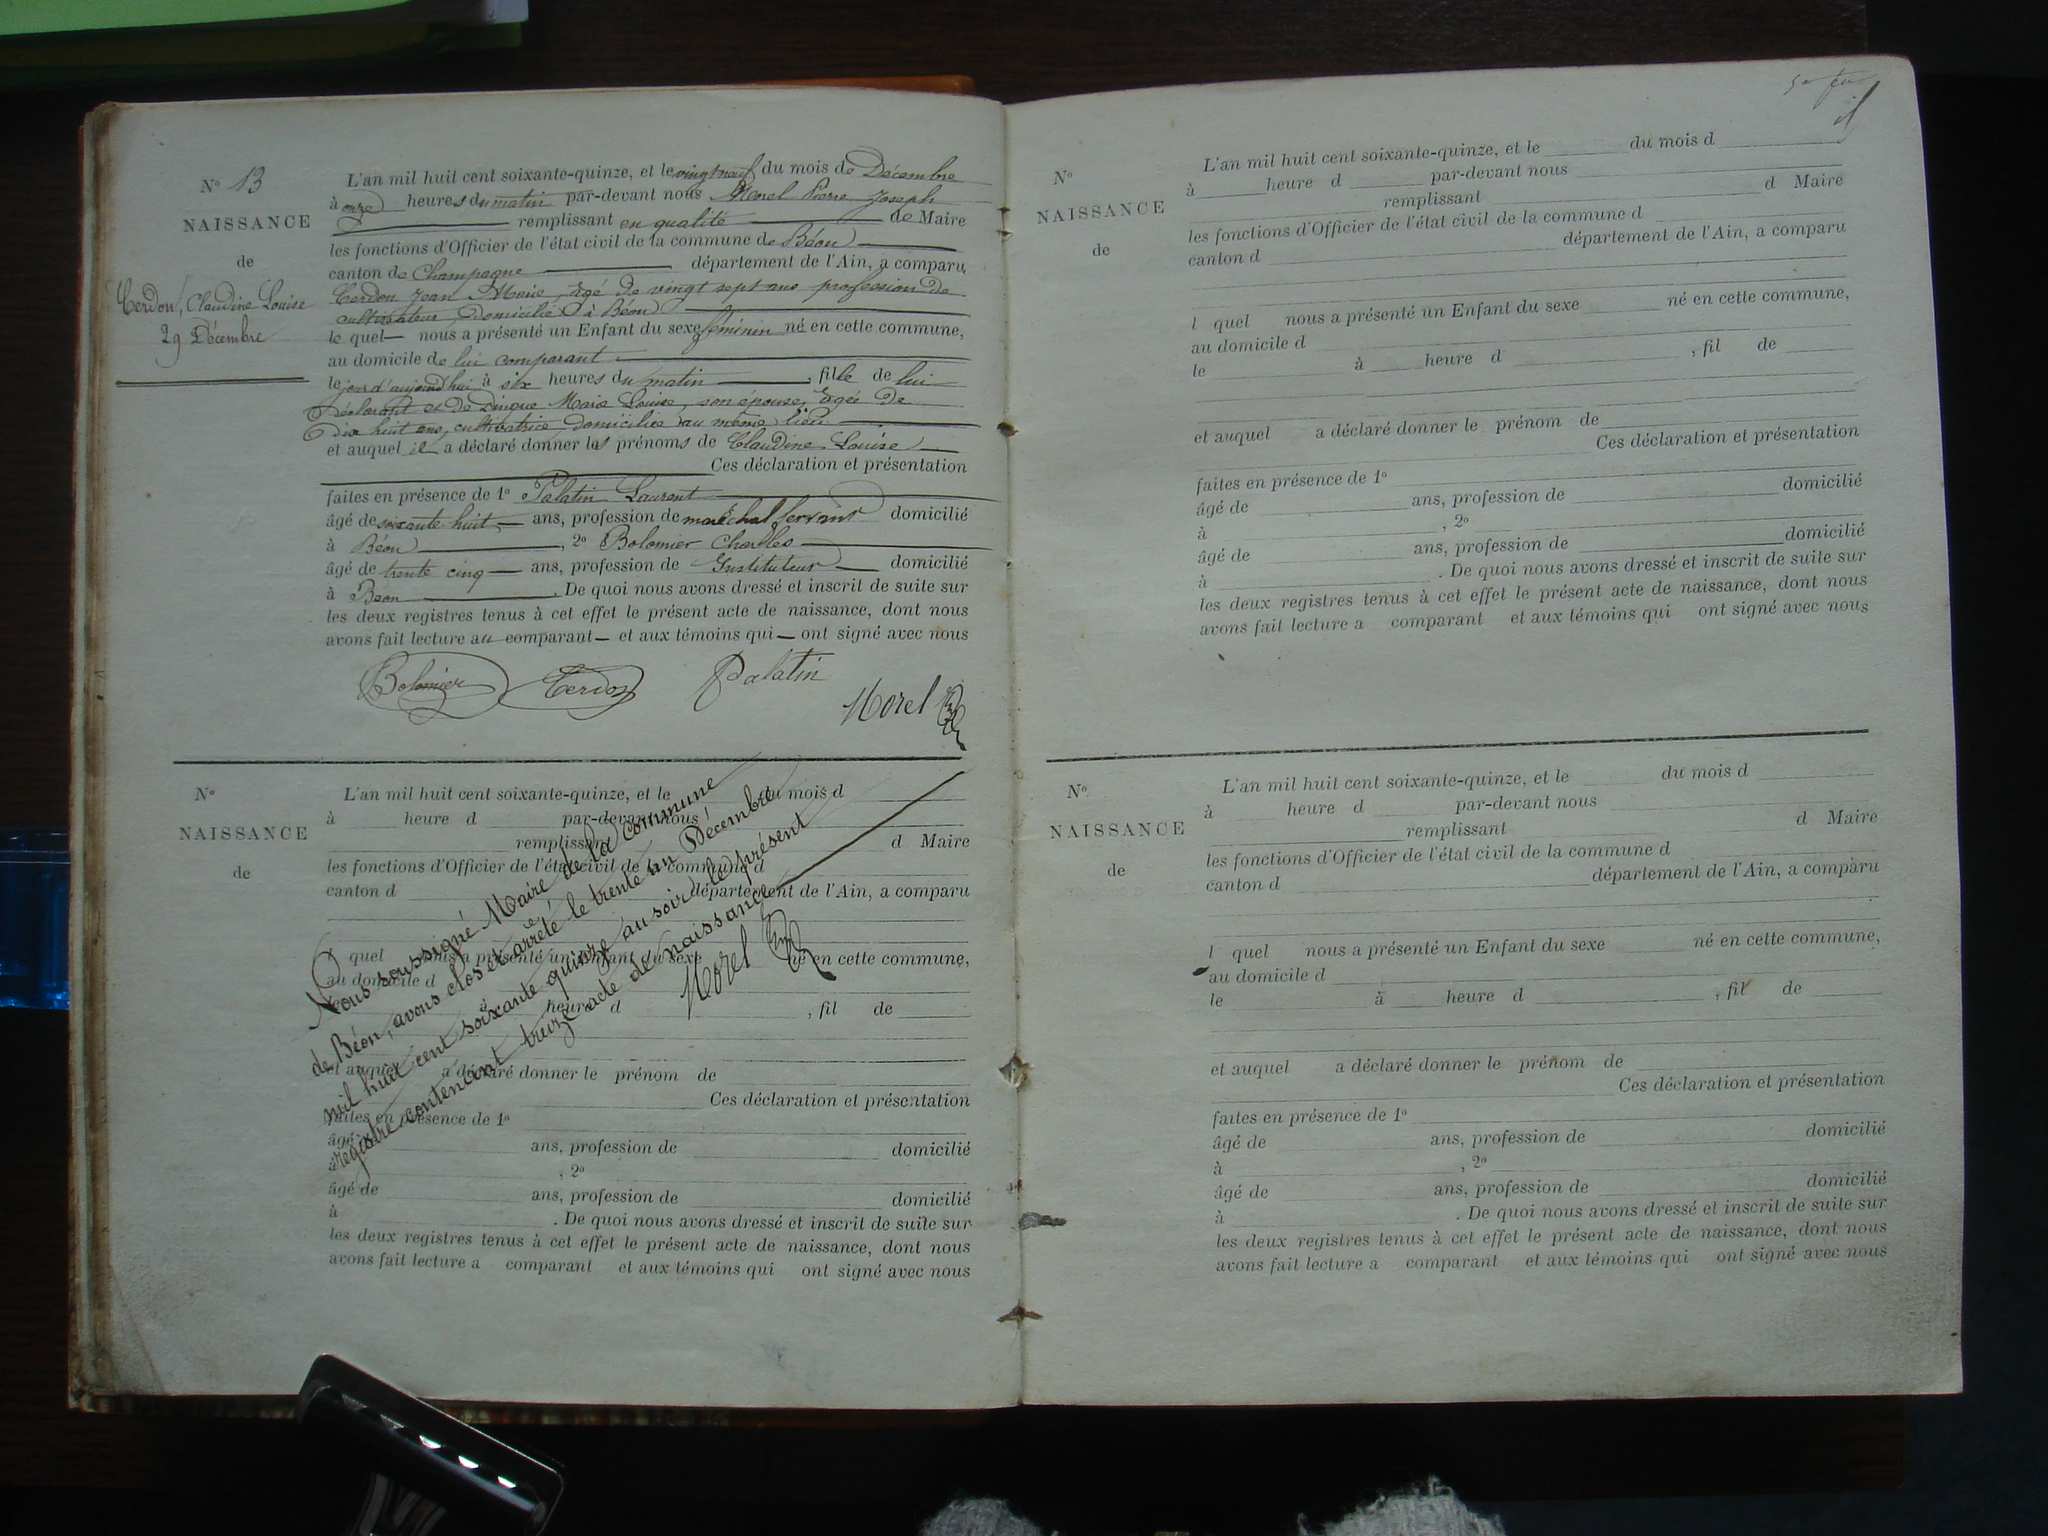 N° 13
NAISSANCE
de
Cerdon, Claudine Louise
29 Décembre
L'an mil huit cent soixante-quinze, et le vingt neuf du mois de Décembre
à onze heures du matin par-devant nous Morel Pierre Joseph
remplissant en qualité de Maire
les fonctions d'Officier de l'état civil de la commune de Béon
canton de Champagne département de l'Ain, a comparu
Cerdon Jean Marie, âgé de vingt sept ans profession de
cultivateur, domicilié à Béon
le quel nous a présenté un Enfant du sexe féminin né en cette commune,
au domicile de lui comparant
le jour d'aujourd'hui à six heures du matin, fille de lui
déclarant et de Marie Louise, son épouse, âgée de
dix huit ans, cultivatrice, domiciliée au même lieu
et auquel il a déclaré donner les prénoms de Claudine Louise
Ces déclaration et présentation
faites en présence de 1° Palatin Laurent
âgé de soixante huit ans, profession de maréchal ferrant domicilié
à Béon, 2° Bolomier Charles
âgé de trente cinq ans, profession de Instituteur domicilié
à Béon. De quoi nous avons dressé et inscrit de suite sur
les deux registres tenus à cet effet le présent acte de naissance, dont nous
avons fait lecture au comparant et aux témoins qui ont signé avec nous
Bolomier Cerdon Palatin
Morel
N°
NAISSANCE
de
L'an mil huit cent soixante-quinze, et le du mois d
à heure d par-devant nous
remplissant d Maire
les fonctions d'Officier de l'état civil de la commune d
canton d département de l'Ain, a comparu
l quel nous a présenté un Enfant du sexe né en cette commune,
au domicile d
le à heure d , fil de
et auquel a déclaré donner le prénom de
Ces déclaration et présentation
faites en présence de 1°
âgé de ans, profession de domicilié
à , 2°
âgé de ans, profession de domicilié
à . De quoi nous avons dressé et inscrit de suite sur
les deux registres tenus à cet effet le présent acte de naissance, dont nous
avons fait lecture a comparant et aux témoins qui ont signé avec nous
Nous soussigné Maire de la commune
de Béon, avons clos et arrêté le trente un Décembre
mil huit cent soixante quinze au soir le présent
registre contenant treize acte de naissance
Morel
N°
NAISSANCE
de
L'an mil huit cent soixante-quinze, et le du mois d
à heure d par-devant nous
remplissant d Maire
les fonctions d'Officier de l'état civil de la commune d
canton d département de l'Ain, a comparu
l quel nous a présenté un Enfant du sexe né en cette commune,
au domicile d
le à heure d , fil de
et auquel a déclaré donner le prénom de
Ces déclaration et présentation
faites en présence de 1°
âgé de ans, profession de domicilié
à , 2°
âgé de ans, profession de domicilié
à . De quoi nous avons dressé et inscrit de suite sur
les deux registres tenus à cet effet le présent acte de naissance, dont nous
avons fait lecture a comparant et aux témoins qui ont signé avec nous
N°
NAISSANCE
de
L'an mil huit cent soixante-quinze, et le du mois d
à heure d par-devant nous
remplissant d Maire
les fonctions d'Officier de l'état civil de la commune d
canton d département de l'Ain, a comparu
l quel nous a présenté un Enfant du sexe né en cette commune,
au domicile d
le à heure d , fil de
et auquel a déclaré donner le prénom de
Ces déclaration et présentation
faites en présence de 1°
âgé de ans, profession de domicilié
à , 2°
âgé de ans, profession de domicilié
à . De quoi nous avons dressé et inscrit de suite sur
les deux registres tenus à cet effet le présent acte de naissance, dont nous
avons fait lecture a comparant et aux témoins qui ont signé avec nous